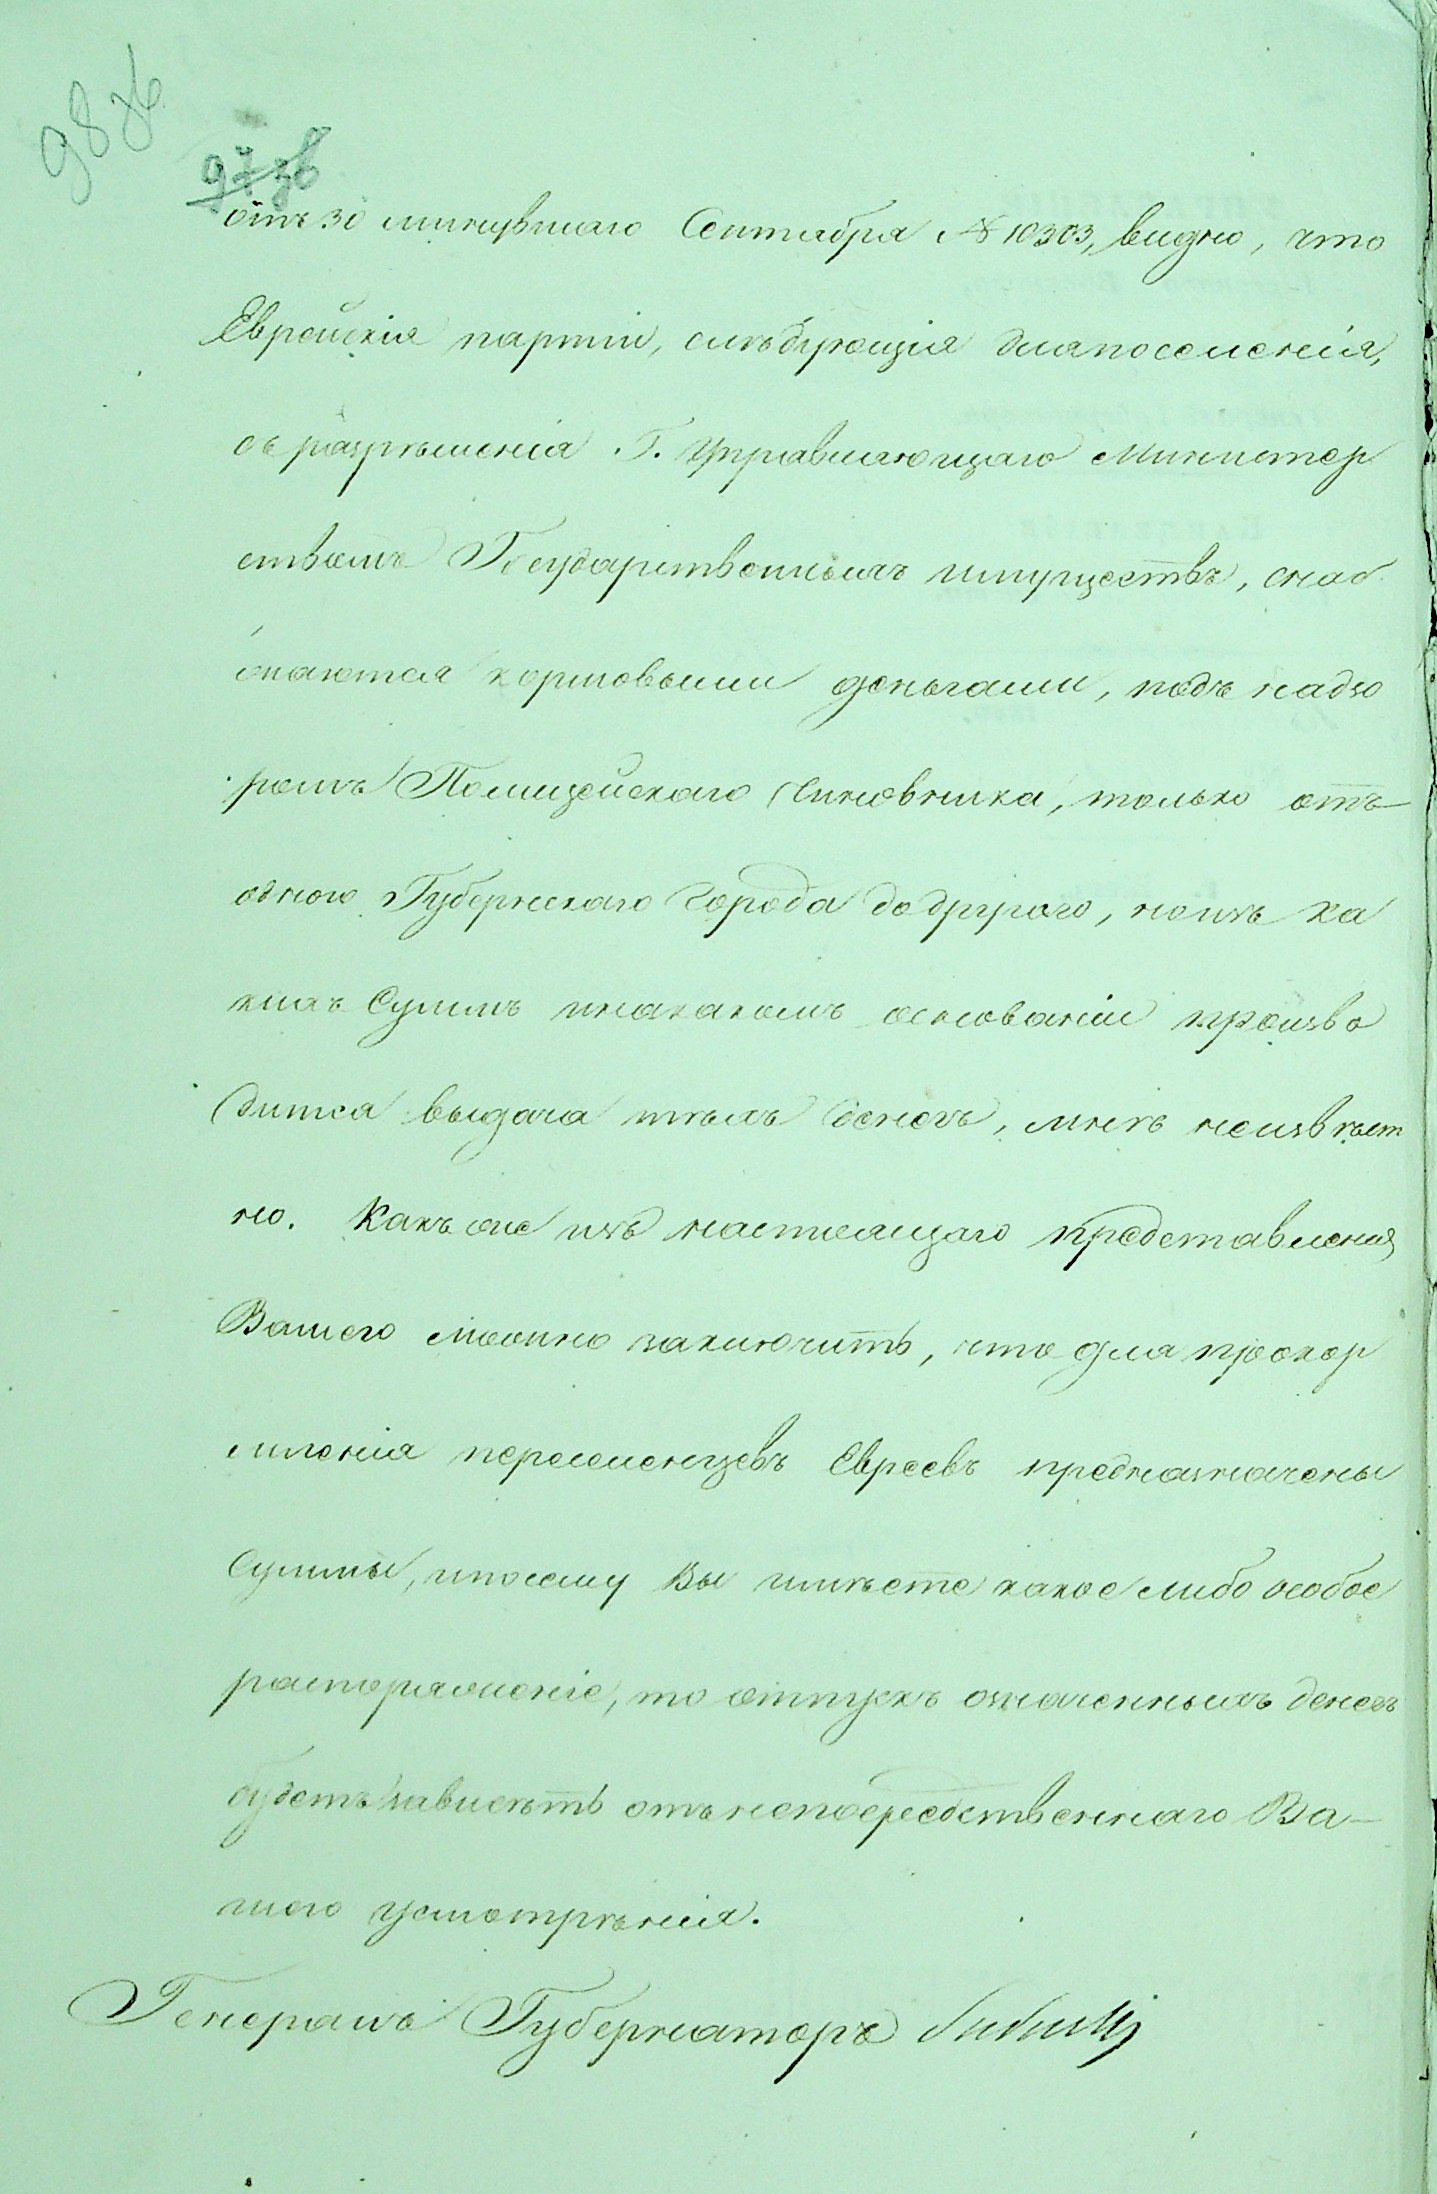 98 об
97 об
отъ 30 минувшаго Сентября № 10303, видно, что
Еврейскія партіи, слѣдующія для поселенія,
съ разрѣшенія Г. Управляющаго Министер
ствомъ Государственныхъ имуществъ, снаб
жаются кормовыми деньгами, подъ надзо
ромъ Полицейскаго Чиновника, только отъ
одного Губернскаго города до другаго, но изъ ка
кихъ Суммъ и на какомъ основаніи произво
дится выдача тѣхъ денегъ, мнѣ неизвѣст
но. Какъ же изъ настоящаго представленія
Вашего можно заключить, что для прокор
мленія переселенцевъ Евреевъ предназначены
Суммы, и по сему Вы имѣете какое либо особое
распоряженіе, то отпускъ означенныхъ денегъ
будетъ зависѣть отъ непосредственнаго Ва-
шего усмотрѣнія.
Генералъ Губернаторъ